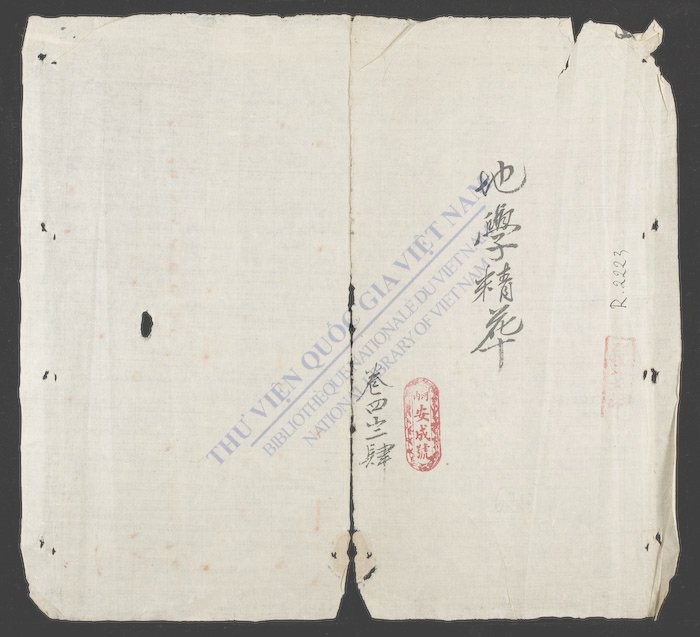 地學精華
卷四之肆
河內
安成號
R.2223
THƯ VIỆN QUỐC GIA VIỆT NAM
BIBLIOTHÈQUE NATIONALE DU VIETNAM
NATIONAL LIBRARY OF VIETNAM